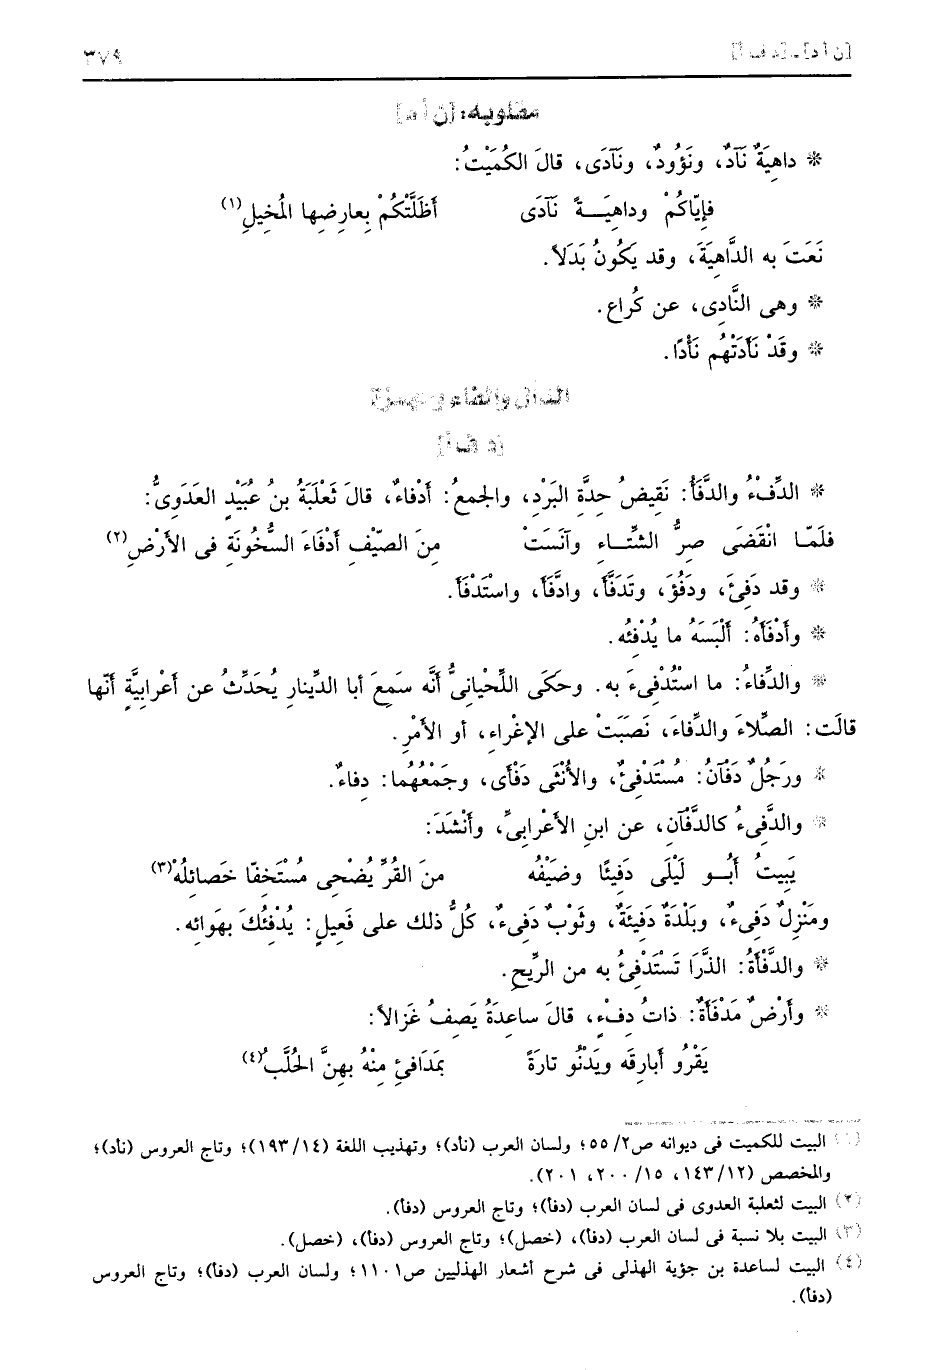 [ن أ د] ـ [د ف أ] ٣٧٩
مقلوبه: [ن أ د]
* داهِيَةٌ نَآدٌ، ونَؤُودٌ، ونَآدَى، قالَ الكُمَيْتُ:
فإيّاكُمْ وداهِيَــةً نَآدَى أظَلَّتْكُمْ بِعارِضِها المُخيلِ(١)
نَعَتَ به الدَّاهِيَةَ، وقد يَكُونُ بَدَلاً.
* وهى النَّادِى، عن كُراع.
* وقَدْ نَأَدَتْهُم نَأْدًا.
الدال والفاء والهمزة
[د ف أ]
* الدِّفْءُ والدَّفَأُ: نَقِيضُ حِدَّةِ البَرْدِ، والجمعُ: أدْفاءٌ، قالَ ثَعْلَبَةُ بنُ عُبَيْدٍ العَدَوِىُّ:
فلَمّـا انْقَضَى صِرُّ الشِّتـاءِ وآنَسَتْ مِنَ الصّيْفِ أدْفَاءَ السُّخُونَةِ فى الأرْضِ(٢)
* وقد دَفِئَ، ودَفُؤَ، وتَدَفَّأَ، وادَّفَأَ، واسْتَدْفَأَ.
* وأدْفَأَهُ: أَلْبَسَهُ ما يُدْفِئُه.
* والدِّفاءُ: ما اسْتُدْفِىءَ به. وحكَى اللِّحْيانىُّ أنَّه سَمِعَ أبا الدِّينارِ يُحَدِّثُ عن أعْرابيَّةٍ أنّها
قالَت: الصِّلاءَ والدِّفاءَ، نَصَبَتْ على الإغْراءِ، أو الأمْرِ.
* ورَجُلٌ دَفْآنُ: مُسْتَدْفِئٌ، والأُنْثَى دَفْأَى، وجَمْعُهُما: دِفاءٌ.
* والدَّفِىءُ كالدَّفْآنِ، عن ابنِ الأعْرابىِّ، وأنْشَدَ:
يَبِيتُ أبُــو لَيْلَى دَفِيئًا وضَيْفُه منَ القُرِّ يُضْحِى مُسْتَخِفّا خَصائلُهْ(٣)
ومَنْزِلٌ دَفِىءٌ، وبَلْدَةٌ دَفِيئَةٌ، وثَوْبٌ دَفِىءٌ، كُلُّ ذلك على فَعِيلٍ: يُدْفِئُكَ بهَوائِه.
* والدَّفْأَةُ: الذَّرَا تَسْتَدْفِئُ به من الرِّيحِ.
* وأَرْضٌ مَدْفَأَةٌ: ذاتُ دِفْءٍ، قالَ ساعِدَةُ يَصِفُ غَزالاً:
يَقْرُو أبارِقَه ويَدْنُو تارَةً بمَدَافِئٍ مِنْهُ بهِنَّ الحُلَّبُ(٤)
(١) البيت للكميت فى ديوانه ص٢/ ٥٥؛ ولسان العرب (نأد)؛ وتهذيب اللغة (١٤/ ١٩٣)؛ وتاج العروس (نأد)؛
والمخصص (١٢/ ١٤٣، ١٥/ ٢٠٠، ٢٠١).
(٢) البيت لثعلبة العدوى فى لسان العرب (دفأ)؛ وتاج العروس (دفأ).
(٣) البيت بلا نسبة فى لسان العرب (دفأ)، (خصل)؛ وتاج العروس (دفأ)، (خصل).
(٤) البيت لساعدة بن جؤية الهذلى فى شرح أشعار الهذليين ص١١٠١؛ ولسان العرب (دفأ)؛ وتاج العروس
(دفأ).